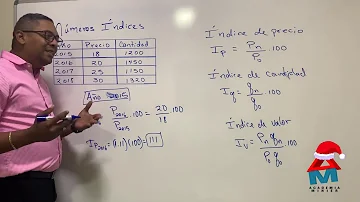 Números Índices
Año Precio Cantidad
2015 18 1200
2016 20 1450
2017 25 1150
2018 30 1320
Año 2015
P2016/P2015 . 100 = 20/18 . 100
IP2016 = (1.11)(100) = 111
Índice de precio
Ip = Pn/P0 . 100
Índice de cantidad
Iq = qn/q0 . 100
Índice de valor
Iv = Pn qn/P0 q0 . 100
AM
ACADEMIA
MINIER